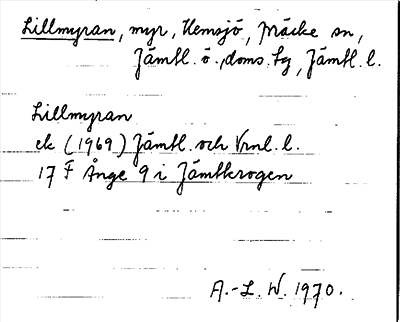 Lillmyran, myr, Hemsjö, Bräcke sn,
Jämtl. ö. doms. tg, Jämtl. l.
Lillmyran
ek (1969) Jämtl. och Vrnl. l.
17 F Ånge 9 i Jämtkrogen
A.-L. W. 1970.